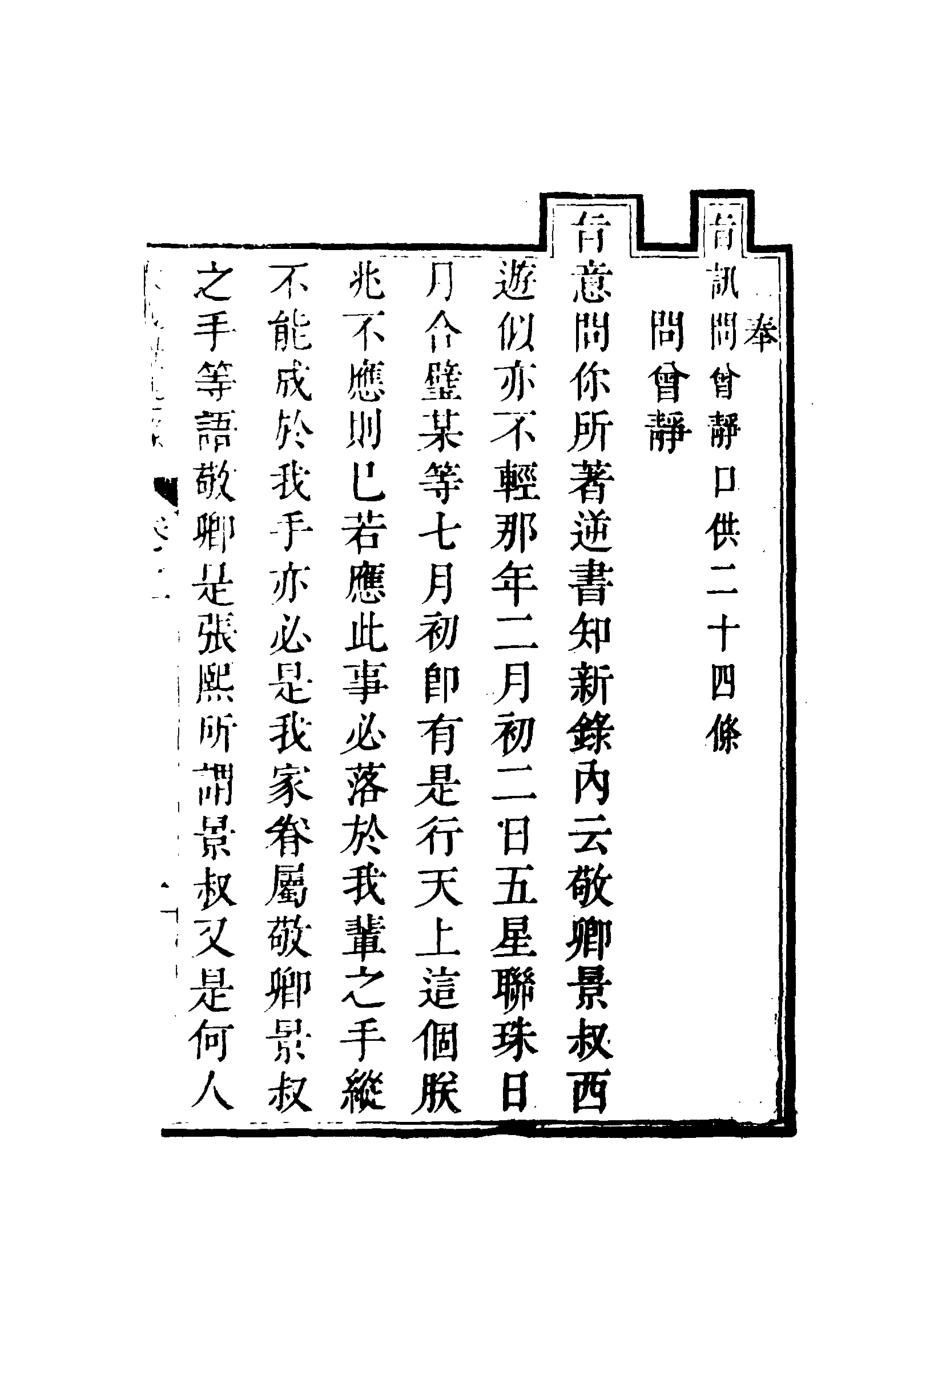 奉
旨訊問曾靜口供二十四條
問曾靜
旨意問你所著逆書知新錄內云敬卿景叔西
遊似亦不輕那年二月初二日五星聯珠日
月合璧某等七月初卽有是行天上這個朕
兆不應則已若應此事必落於我輩之手縱
不能成於我手亦必是我家眷屬敬卿景叔
之手等語敬卿是張熙所謂景叔又是何人